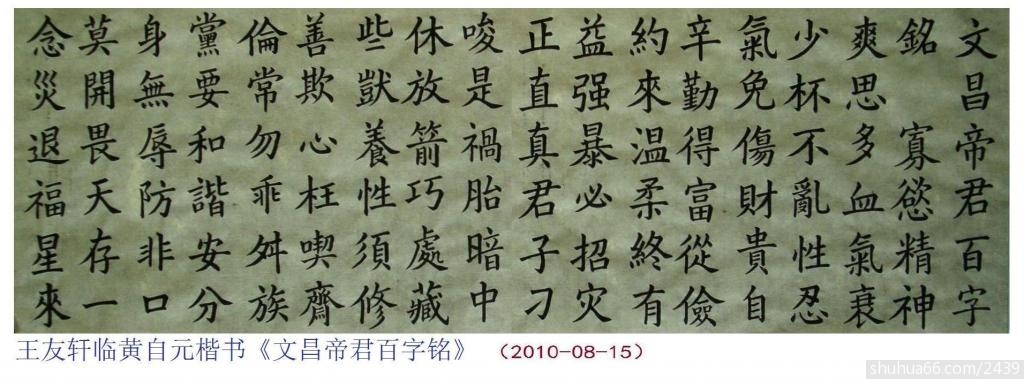 文昌帝君百字
銘 寡慾精神
爽思多血氣衰
少杯不亂性忍
氣免傷財貴自
辛勤得富從儉
約來温柔終有
益强暴必招灾
正直真君子刁
唆是禍胎暗中
休放箭巧處藏
些獸養性須修
善欺心枉喫齋
倫常勿乖舛族
黨要和諧安分
身無辱防非口
莫開畏天存一
念災退福星來
王友轩临黄自元楷书《文昌帝君百字铭》 （2010-08-15）
shuhua66.com/2439